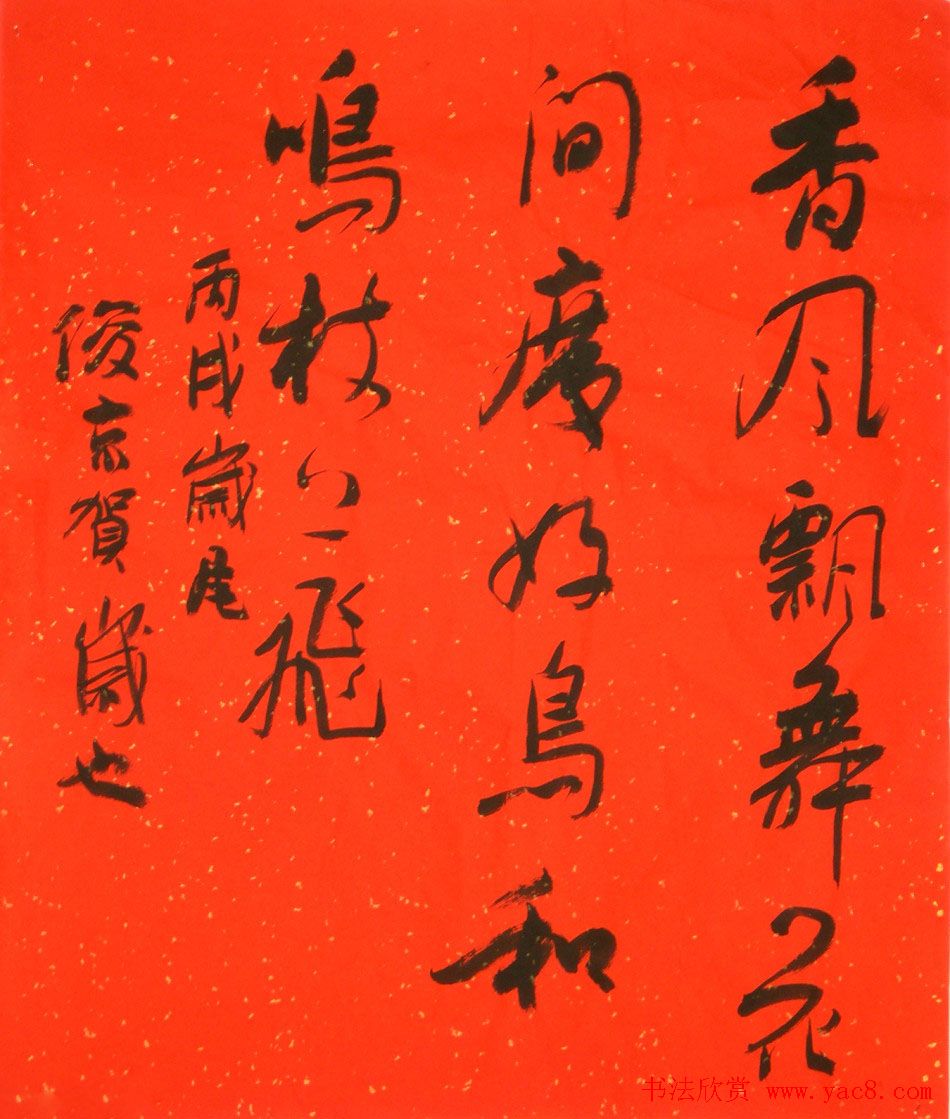 香风飘舞花
间席好鸟和
鸣枝上飛
丙戌歲尾
俊京賀歲也
书法欣赏 www.yac8.com